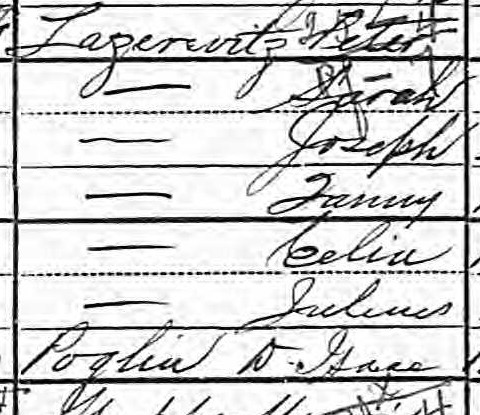 Lazerevitz Peter
— Sarah
— Joseph
— Fanny
— Celia
— Julius
Poglin D.